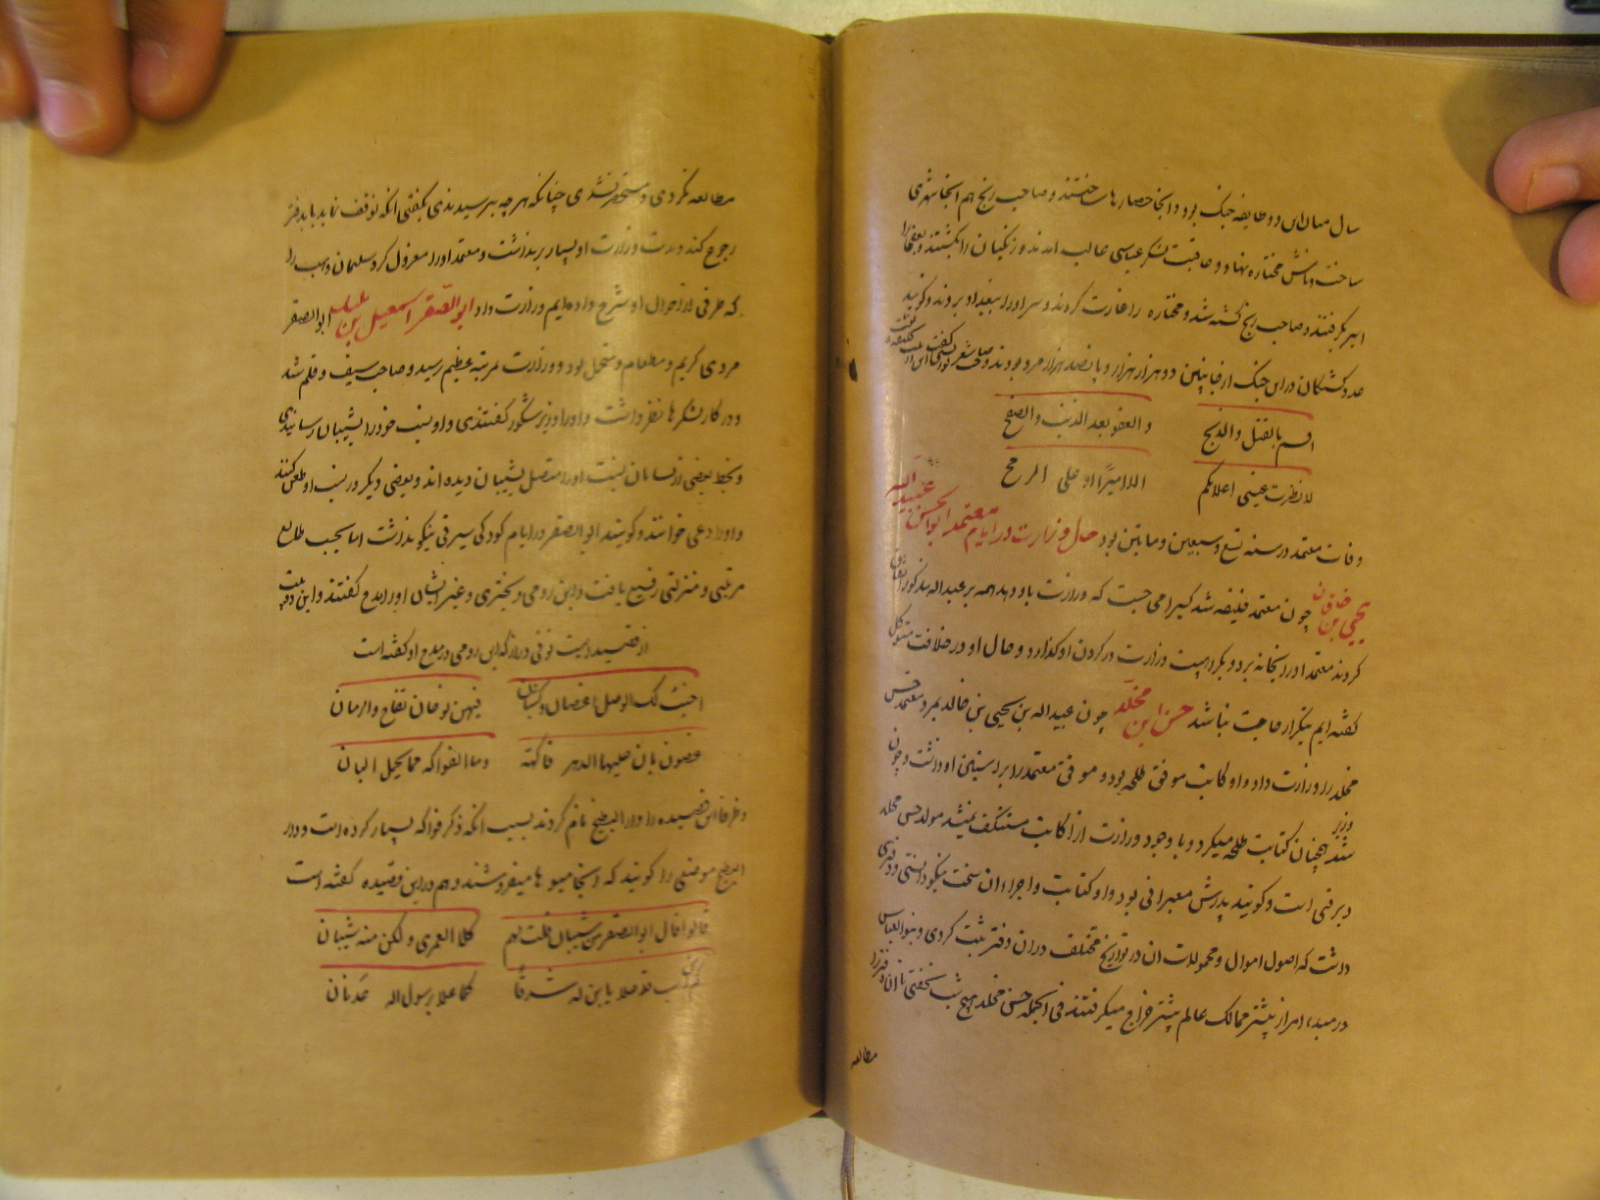 سال میان این دو طایفه جنک بود و انجا حصارها ساختند و صاحب زنج هم انجا شهری
ساخت و نامش مختاره نهاد و عاقبت لشکر عباسی غالب امدند و زنکیان را بکشتند و بعضی را
اسیر بکرفتند و صاحب زنج کشته شد و مختاره را غارت کردند و سر او را ببغداد بردند و کویند
عدد کشتکان در این جنک از جانبین دو هزار هزار و پانصد هزار مرد بودند
اقسم بالقتل والذبح والعفو بعد الذنب والصفح
لا نظرت عینی اعلامکم الا امیرا او علی الرمح
وفات معتمد در سنه تسع و سبعین و مایتین بود حال وزارت در ایام معتمد ابوالحسن عبیدالله
یحیی بن خاقان چون معتمد خلیفه شد کسی را می جست که وزارت باو دهد همه بر عبیدالله مذکور اتفاق
کردند معتمد او را بخانه برد و بکراهیت وزارت در کردن او کذارد و حال او در خلافت متوکل
کفته ایم بتکرار حاجت نباشد حسن ابن مخلد چون عبیدالله بن یحیی بن خاقان بمرد معتمد حسن
مخلد را وزارت داد و او کاتب موفق طلحه بود و موفق معتمد را براستی او داشت و چون وزیر
شد همچنان کتابت طلحه میکرد و با وجود وزارت از کتابت مستنکف نمیشد مولد حسن مخلد
دیرقنی است و کویند پدرش معبرانی بود و او کتابت و اجراء ان سخت نیکو دانستی و دفتری
داشت که اصول اموال و محمولات ان در تواریخ مختلف در ان دفتر ثبت کردی و بنوالعباس
در مبداء امر از بیشتر ممالک عالم بیشتر خراج میکرفتند فی الجمله حسن مخلد هیچ شب نخفتی تا ان دفتر را
مطالعه
مطالعه نکردی و مستحضر نشدی چنانکه هر چه بپرسیدندی بکفتی انکه توقف نماید یا بدفتر
رجوع کند و مدت وزارت او بسیار بر نداشت و معتمد او را معزول کرد سلیمان وهب را
که طرفی از احوال او شرح داده ایم وزارت داد ابو الصقر اسمعیل بن بلبل ابوالصقر
مردی کریم و مطعام و متجمل بود و وزارت بمرتبه عظیم رسید و صاحب سیف و قلم شد
و در کار لشکرها نظر داشت و او را وزیر شکور کفتندی و او نسب خود را بشیبان رسانیدی
و بخط بعضی از نسابان نسبت او را متصل بشیبان دیده اند و بعضی دیکر در نسب او طعن کنند
و او را دعی خوانند و کویند ابوالصقر در ایام کودکی سیرتی نیکو نداشت اما بحسب طالع
مرتبتی و منزلتی رفیع یافت و ابن رومی و بحتری و غیر ایشان او را مدح کفتند و این دو بیت
از قصیده ایست نونی دراز که ابن رومی در مدح او کفته است
اجنت لک الوصل اغصان وکثبان فیهن نوعان تفاح و رمان
غصون بان علیها الدهر فاکهه وما الفواکه مما یحمل البان
و ظرفا این قصیده را دار البطیخ نام کردند بسبب انکه ذکر فواکه بسیار کرده است و دار
البطیخ موضعی را کویند که انجا میوها میفروشند و هم در این قصیده کفته است
قالوا قال ابو الصقر من شیبان قلت لهم کلا لعمری ولکن منه شیبان
قد علا بابن له شرفا کما علا برسول الله عدنان